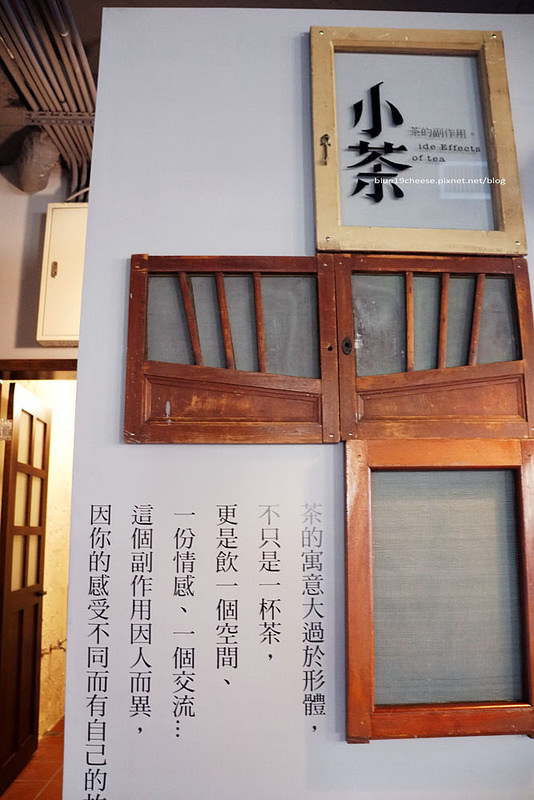 小茶
茶的副作用。
ide Effects
of tea
blun19cheese.pixnet.net/blog
茶的寓意大過於形體，
不只是一杯茶，
更是飲一個空間、
一份情感、一個交流…
這個副作用因人而異，
因你的感受不同而有自己的